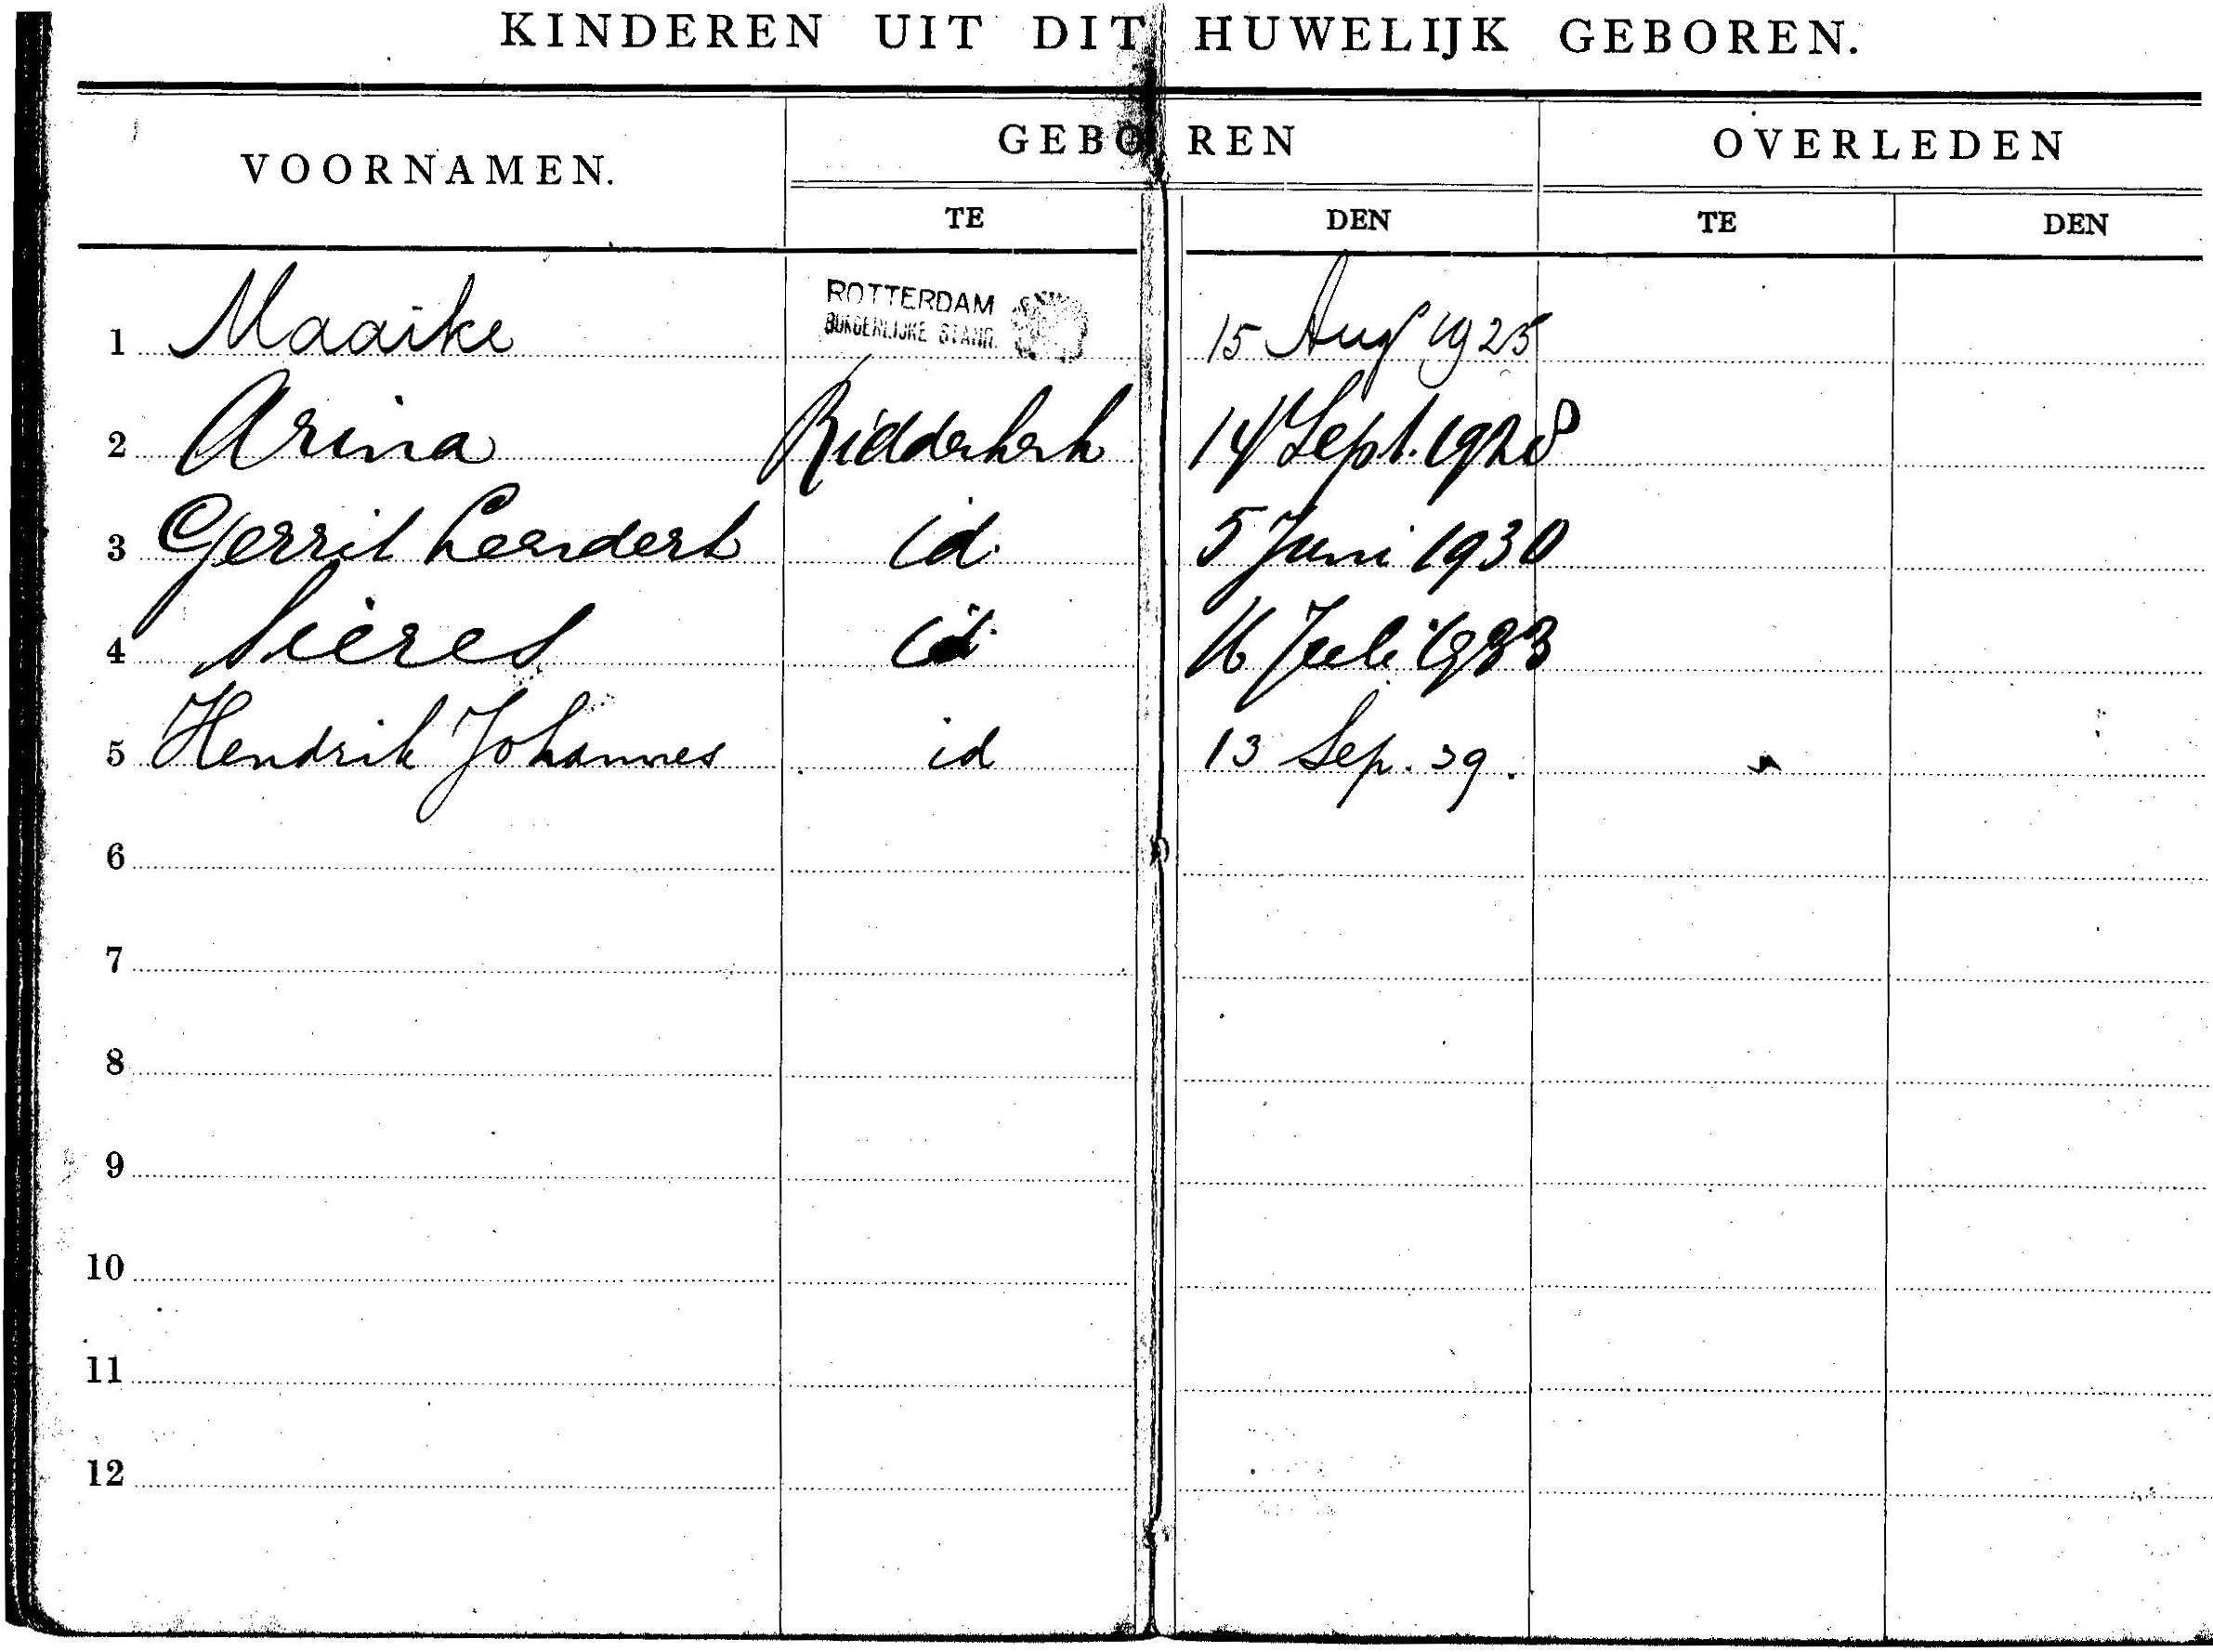 KINDEREN UIT DIT HUWELIJK GEBOREN.
VOORNAMEN. GEBOREN OVERLEDEN
TE DEN TE DEN
1 Maaike ROTTERDAM 15 Aug 1925
BURGERLIJKE STAND.
2 Arina Ridderkerk 14 Sept. 1928
3 Gerrit Leendert id. 5 Juni 1930
4 id. 16 Juli 1933
5 Hendrik Johannes id 13 Sep. 39.
6
7
8
9
10
11
12